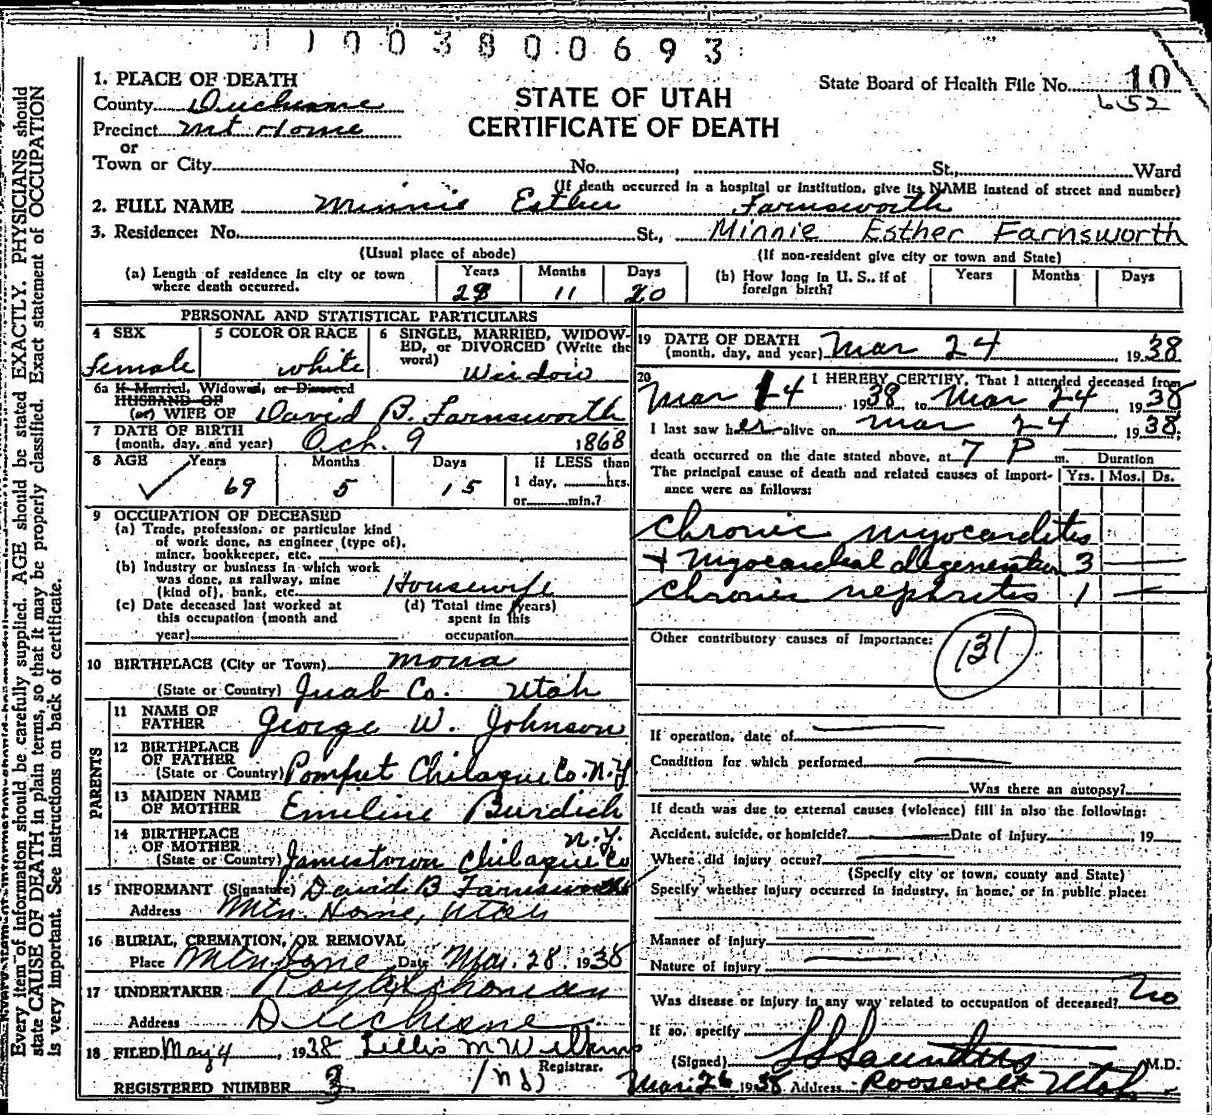 1003800693
1. PLACE OF DEATH
County Duchesne
Precinct Mt Home
or
Town or City No. , St., Ward
State Board of Health File No. 10
652
STATE OF UTAH
CERTIFICATE OF DEATH
(If death occurred in a hospital or institution, give its NAME instead of street and number)
2. FULL NAME Minnie Esther Farnsworth
3. Residence: No. St., Minnie Esther Farnsworth
(Usual place of abode) (If non-resident give city or town and State)
(a) Length of residence in city or town where death occurred. Years Months Days
11 20
(b) How long in U. S., if of foreign birth? Years Months Days
PERSONAL AND STATISTICAL PARTICULARS
4 SEX 5 COLOR OR RACE 6 SINGLE, MARRIED, WIDOW-
ED, or DIVORCED (Write the
word)
Female white Widow
6a If Married, Widowed, or Divorced
HUSBAND OF
(or) WIFE OF David B. Farnsworth
7 DATE OF BIRTH
(month, day, and year) Oct. 9 1868
8 AGE Years Months Days If LESS than
1 day, hrs.
or min.?
69 5 15
9 OCCUPATION OF DECEASED
(a) Trade, profession, or particular kind
of work done, as engineer (type of),
miner, bookkeeper, etc.
(b) Industry or business in which work
was done, as railway, mine
(kind of), bank, etc. Housewife
(c) Date deceased last worked at
this occupation (month and
year)
(d) Total time (years)
spent in this
occupation
10 BIRTHPLACE (City or Town) Mona
(State or Country) Juab Co. Utah
PARENTS
11 NAME OF
FATHER George W. Johnson
12 BIRTHPLACE
OF FATHER
(State or Country) Pomfret Co. N.Y
13 MAIDEN NAME
OF MOTHER Emiline
14 BIRTHPLACE
OF MOTHER N.Y.
(State or Country) Jamestown Co
15 INFORMANT (Signature) David B Farnsworth
Address Mtn. Home, Utah
16 BURIAL, CREMATION, OR REMOVAL
Place Mtn Home Date Mar. 28 1938
17 UNDERTAKER
Address Duchesne
18 FILED May 4, 1938 Lillis M Wilkins
Registrar.
REGISTERED NUMBER 3
19 DATE OF DEATH
(month, day, and year) Mar 24, 1938
20 I HEREBY CERTIFY, That I attended deceased from
Mar 14 1938 to Mar 24, 1938
I last saw her alive on Mar 24 1938,
death occurred on the date stated above, at 7 P m. Duration
The principal cause of death and related causes of import-
ance were as follows: Yrs. Mos. Ds.
Chronic myocarditis
+ Myocardial degeneration 3
Chronic nephritis 1
Other contributory causes of importance:
131
If operation, date of
Condition for which performed
Was there an autopsy?
If death was due to external causes (violence) fill in also the following:
Accident, suicide, or homicide? Date of injury 19
Where did injury occur?
(Specify city or town, county and State)
Specify whether injury occurred in industry, in home, or in public place:
Manner of injury
Nature of injury
Was disease or injury in any way related to occupation of deceased? No
If so, specify
(Signed) Saunders M.D.
Mar 26 1938 Address Roosevelt Utah
Every item of information should be carefully supplied. AGE should be stated EXACTLY. PHYSICIANS should
state CAUSE OF DEATH in plain terms, so that it may be properly classified. Exact statement of OCCUPATION
is very important. See instructions on back of certificate.